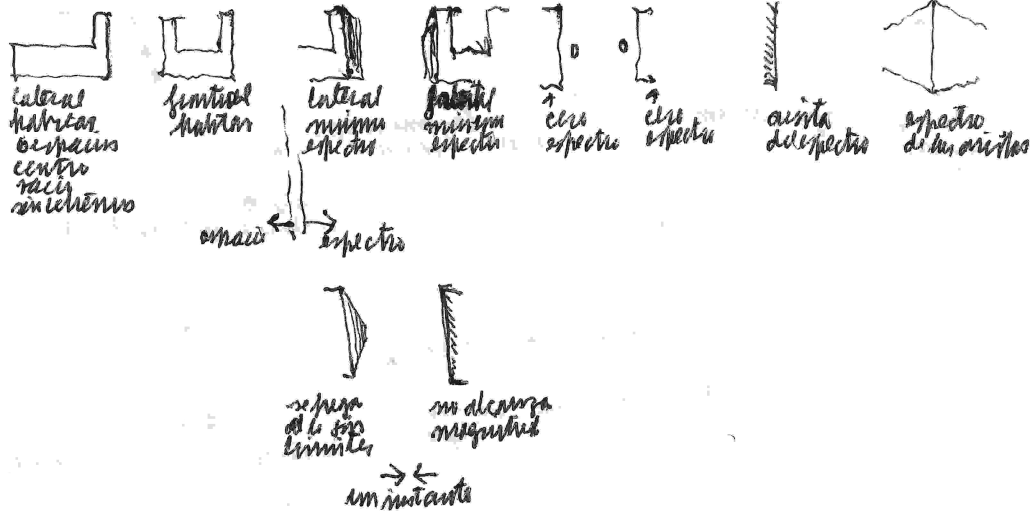 lateral
habitar
espacios
centro
vacío
frontal
habitar
lateral
mínimo
espectro
mínimo
espectro
cero
espectro
cero
espectro
arista
del espectro
espectro
de las aristas
espacio
espectro
se pega
límites
no alcanza
magnitud
un instante